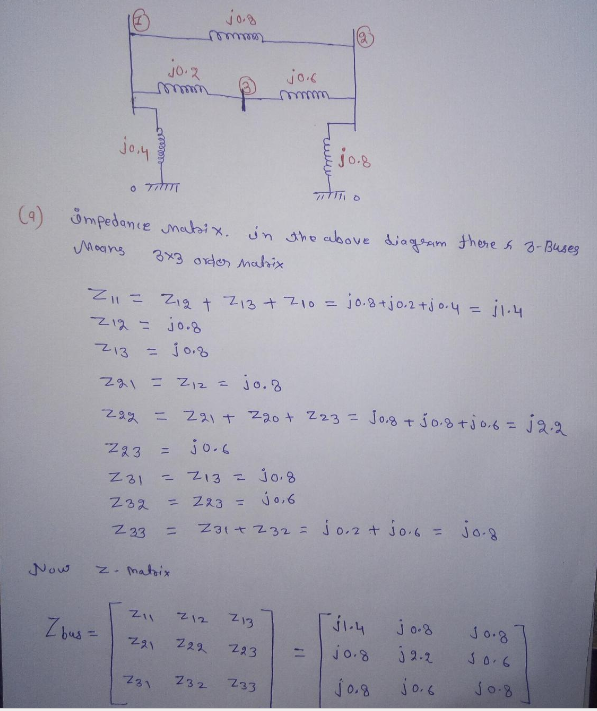 ① j0.8 ②
j0.2 ③ j0.6
j0.4 j0.8
0 0
(a) impedance matrix. in the above diagram there is 3-Buses
Means 3x3 order matrix
Z11 = Z12 + Z13 + Z10 = j0.8+j0.2+j0.4 = j1.4
Z12 = j0.8
Z13 = j0.8
Z21 = Z12 = j0.8
Z22 = Z21 + Z20 + Z23 = j0.8 + j0.8 + j0.6 = j2.2
Z23 = j0.6
Z31 = Z13 = j0.8
Z32 = Z23 = j0.6
Z33 = Z31 + Z32 = j0.2 + j0.6 = j0.8
Now Z-matrix
Zbus = [ Z11 Z12 Z13 ] = [ j1.4 j0.8 j0.8 ]
[ Z21 Z22 Z23 ] [ j0.8 j2.2 j0.6 ]
[ Z31 Z32 Z33 ] [ j0.8 j0.6 j0.8 ]